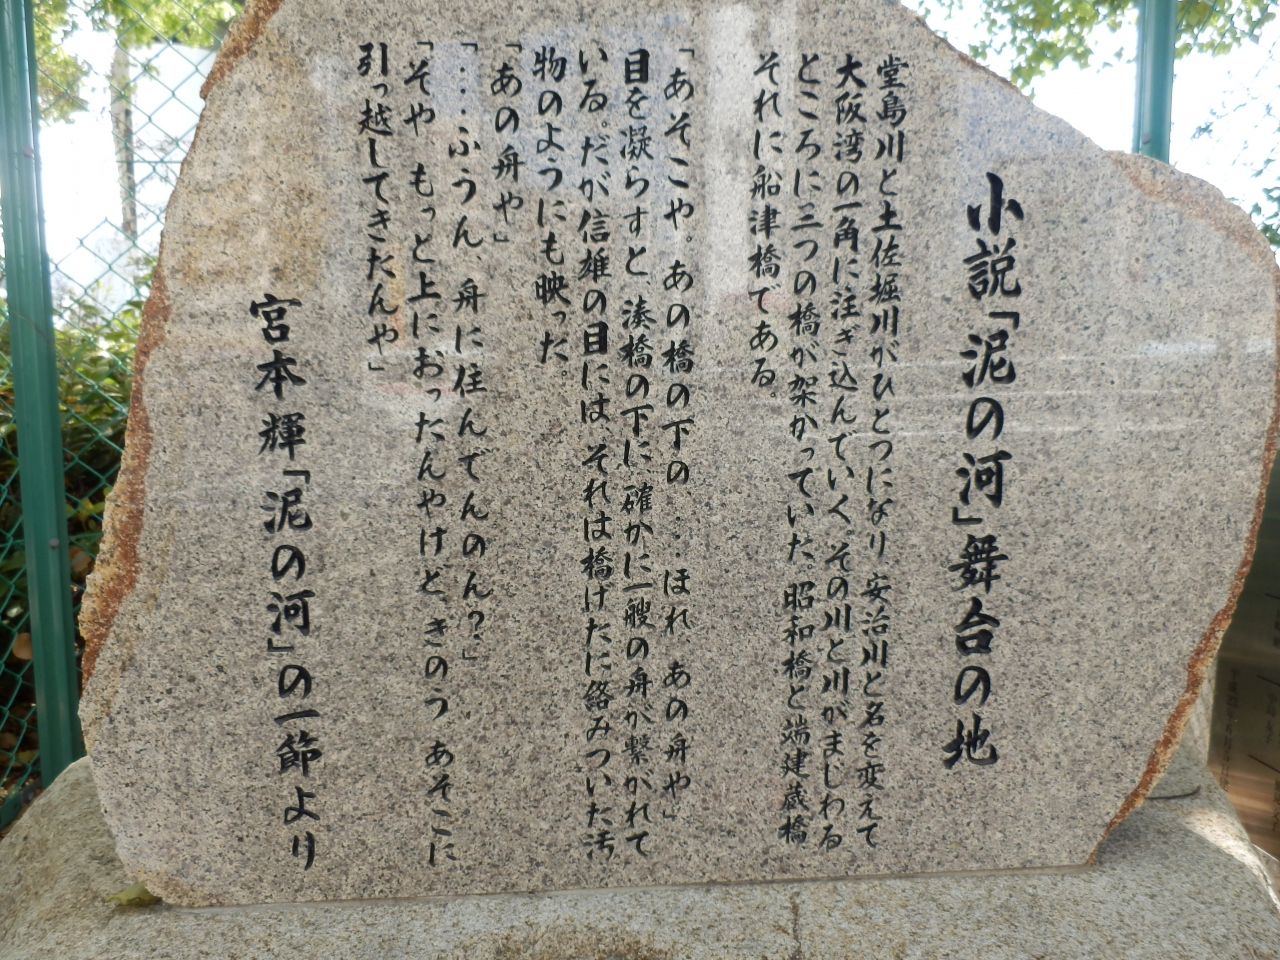 小説「泥の河」舞台の地
堂島川と土佐堀川がひとつになり、安治川と名を変えて
大阪湾の一角に注ぎ込んでいく。その川と川がまじわる
ところに三つの橋が架かっていた。昭和橋と端建蔵橋
それに船津橋である。
「あそこや。あの橋の下の…ほれ、あの舟や」
目を凝らすと、湊橋の下に、確かに一艘の舟が繋がれて
いる。だが信雄の目には、それは橋げたに絡みついた汚
物のようにも映った。
「あの舟や」
「…ふうん、舟に住んでんのん？」
「そや、もっと上におったんやけど、きのう、あそこに
引っ越してきたんや」
宮本輝「泥の河」の一節より